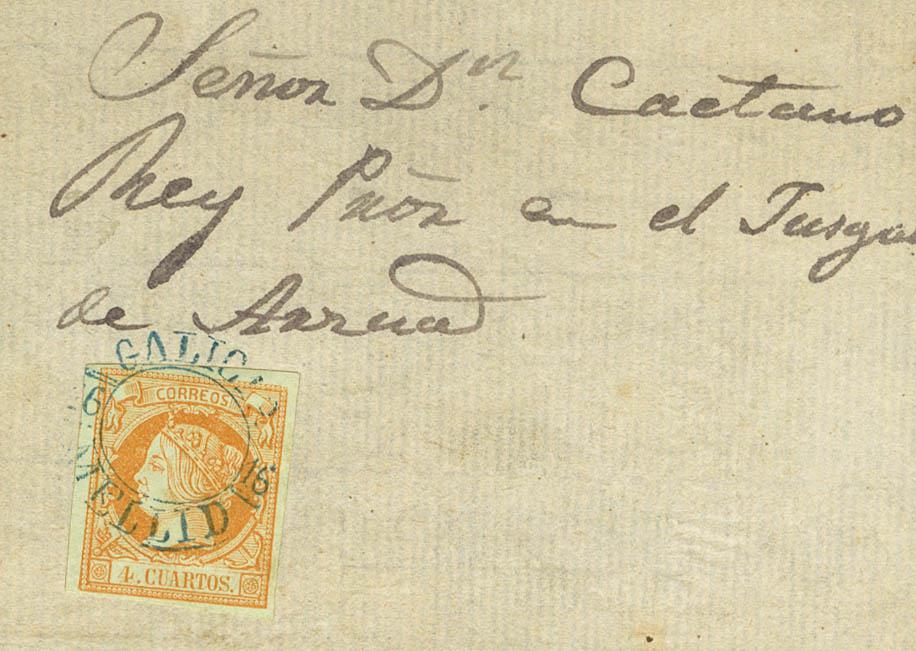 Señor Dn. Caetano
Rey Piñon en el Jusga
de Arzua
GALICIA
16
CORREOS
16
MELLID
4. CUARTOS.